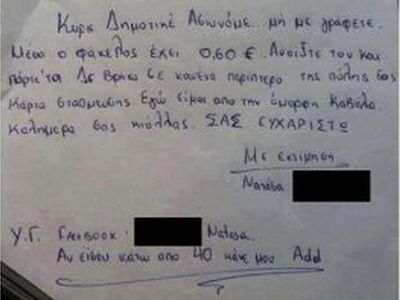 Κύριε Δημοτικέ Αστυνόμε... μή με γράφετε.
Μέσα ο φάκελος έχει 0,60 €. Ανοίξτε τον και
πάρτε τα. Δε βρήκα σε κανένα περίπτερο της πόλης σας
Κάρτα στάθμευσης Εγώ είμαι από την όμορφη Καβάλα.
Καλημέρα σας κιόλλας. ΣΑΣ ΕΥΧΑΡΙΣΤΩ
Με εκτίμηση
Νατάσα
Υ.Γ. Facebook: Natasa.
Αν είσαι κάτω από 40 κάνε μου Add